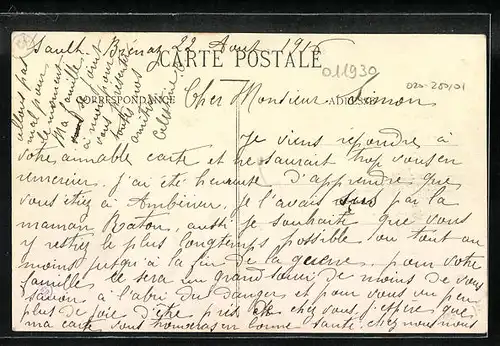 Sault-Brénaz 22 Août 1916
CARTE POSTALE
011930
020-200/01
CORRESPONDANCE
ADRESSE
Cher Monsieur Simon
Je viens répondre à
votre aimable carte et ne saurait trop vous en
remercier. J'ai été heureuse d'apprendre que
vous étiez à Ambérieu, je l'avais sus par la
maman Raton, aussi je souhaite que vous
y restiez le plus longtemps possible ou tout au
moins jusqu'à la fin de la guerre. pour votre
famille ce sera un grand souci de moins de vous
savoir à l'abri du danger et pour vous un peu
plus de joie d'être près de chez vous. J'espère que
ma carte vous trouveras en bonne santé. chez nous nous
allons pas
mal pour
le moment
Ma famille
se joint
à moi pour
vous présenter
toutes nos
amitiés